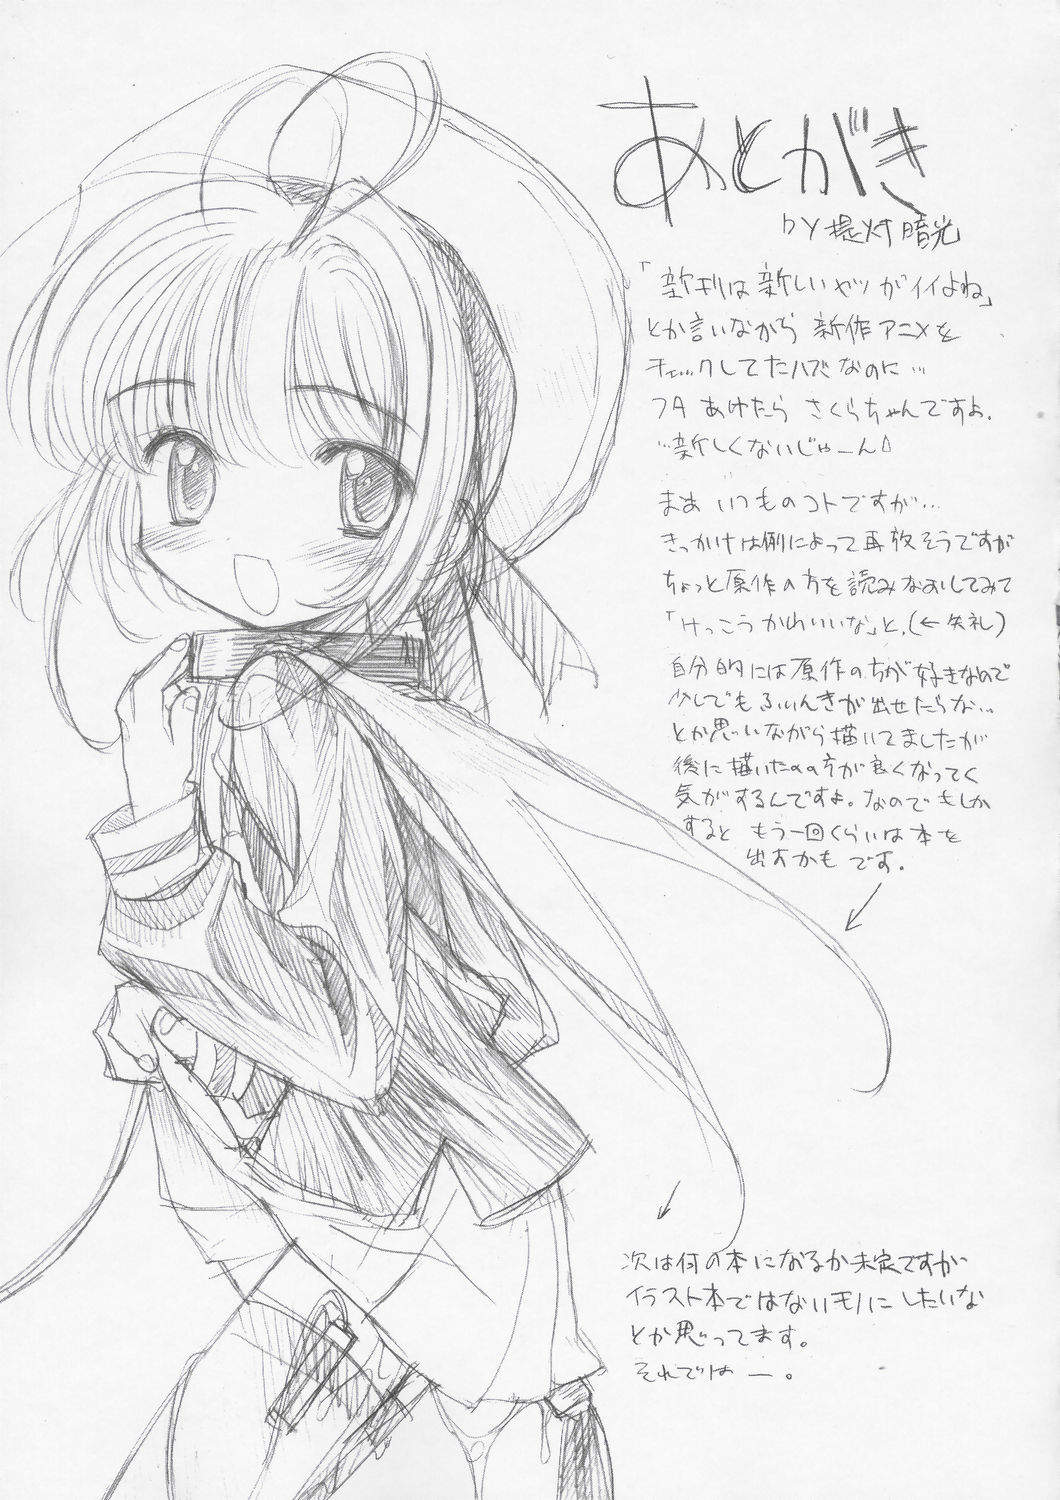 あとがき
by 提灯暗光
「新刊は新しいヤツがイイよね」
とか言いながら 新作アニメを
チェックしてたハズなのに…
フタあけたら さくらちゃんですよ。
…新しくないじゃーん
まあ いつものコトですが…
きっかけは例によって再放そうですが
ちょっと原作の方を読みなおしてみて
「けっこうかわいいな」と、(←失礼)
自分的には原作のちが好きなので
少しでもふいんきが出せたらな…
とか思いながら描いてましたが
後に描いたのの方が良くなってく
気がするんですよ。なのでもしか
すると もう一回くらいは本を
出すかも です。
次は何の本になるか未定ですが
イラスト本ではないモノにしたいな
とか思ってます。
それではー。